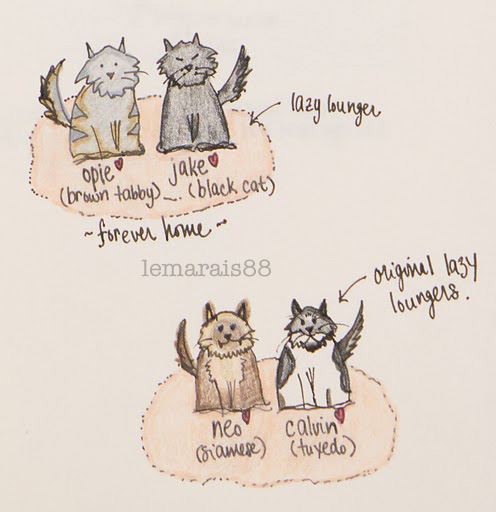 lazy lounger
opie jake
(brown tabby) ... (black cat)
~forever home~
lemarais88
original lazy
loungers.
neo calvin
(siamese) (tuxedo)